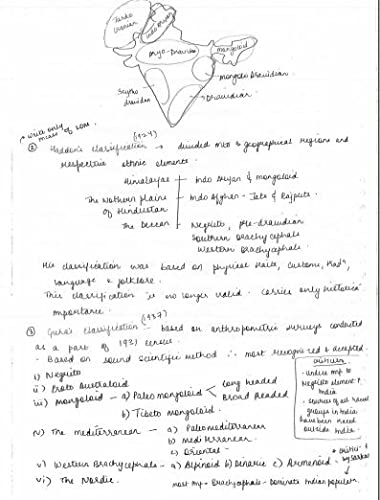 Turko Iranian
Indo Aryan
Aryo-Dravidian
mongoloid
Mongolo Dravidian
Scytho dravidian
Dravidian
write only
names of some
② Haddon's classification (1924) → divided into 3 geographical regions and
respective ethnic elements.
Himalayas - Indo Aryan & mongoloid
The Northern plains - Indo Afghan - Jats & Rajputs.
of Hindustan
The Deccan - Negrito, Pre-dravidian
Southern Brachycephals
Western Brachycephals.
His classification was based on physical traits, customs,
language & folklore.
This classification is no longer valid. carries only historical
importance.
③ Guha's classification (1937) - based on anthropometric surveys conducted
as a part of 1931 census.
- Based on sound scientific method ∴ most recognised & accepted.
i) Negrito
ii) Proto Australoid
iii) mongoloid - a) Paleo mongoloid < Long headed
Broad headed
b) Tibeto mongoloid.
iv) The mediterranean - a) Paleomediterranean
b) mediterranean
c) Oriental -
v) Western Brachycephals - a) Alpinoid b) Dinaric c) Armenoid.
vi) The Nordic.
Criticism
- Undue imp to
Negrito element
- sources of all racial
groups in India
have been traced
outside India.
Critic:
by Sarkar
most imp - Brachycephals - dominate Indian populn.